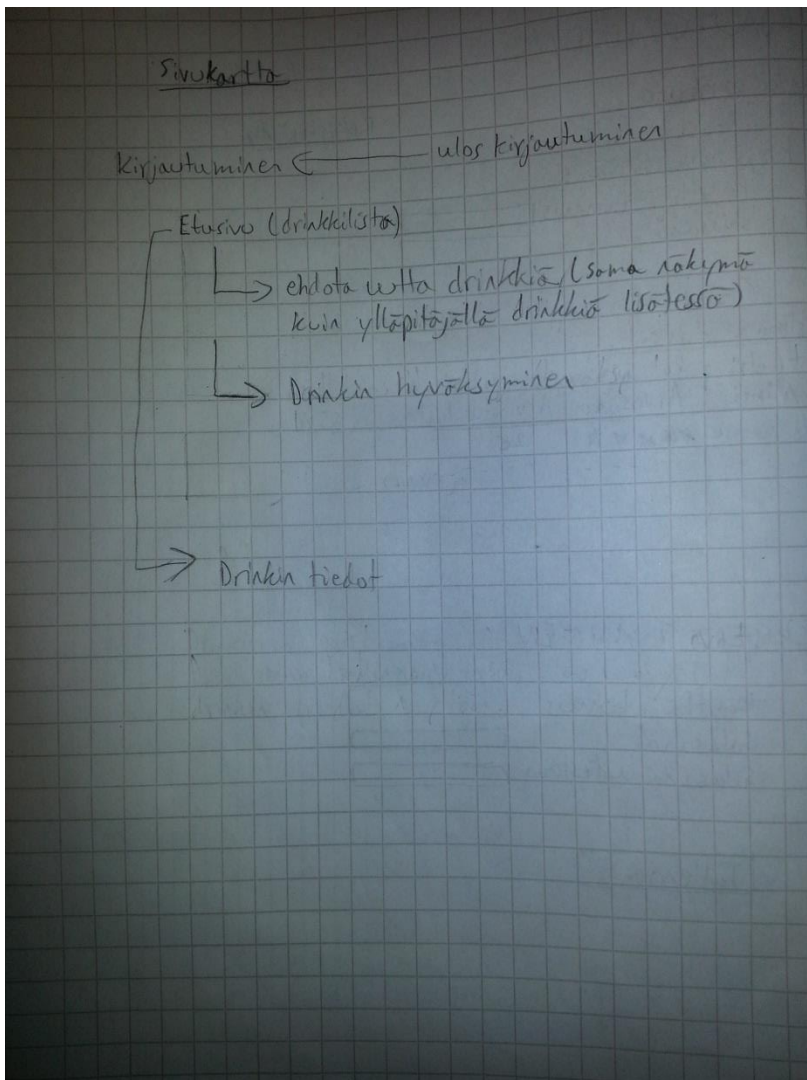 Sivukartta
Kirjautuminen ulos kirjautuminen
Etusivu (drinkkilista)
ehdota uutta drinkkiä (sama näkymä
kuin ylläpitäjällä drinkkiä lisätessä)
Drinkin hyväksyminen
Drinkin tiedot